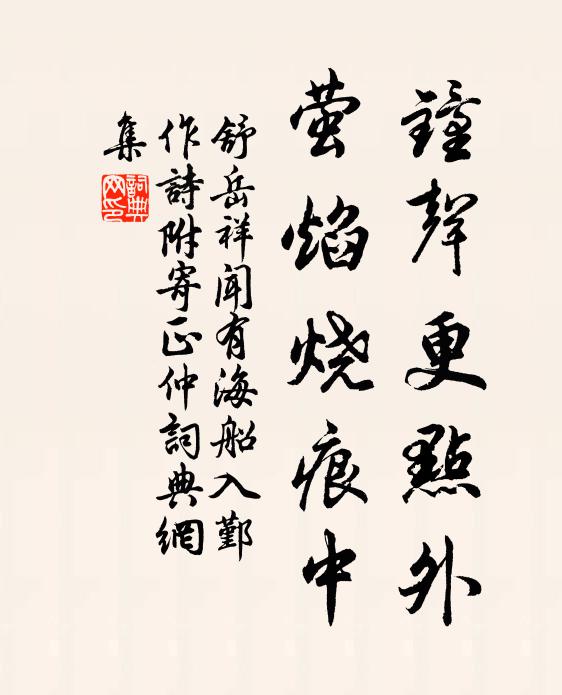 鐘聲更點外
萤焰烧痕中
舒岳祥闻有海船入鄞
作詩附寄正仲詞典網
集
詞典网印